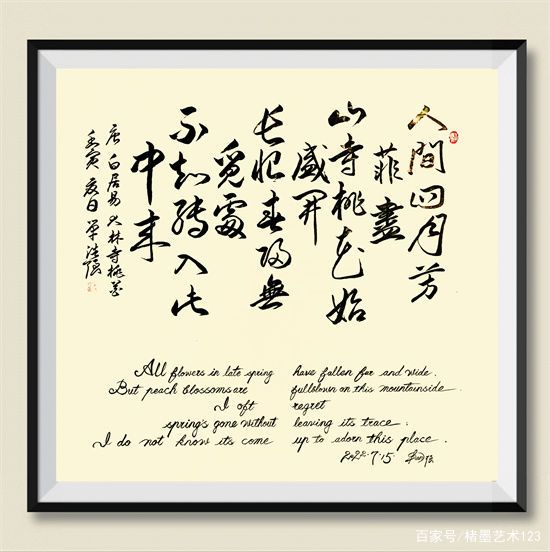 人間四月芳
菲盡
山寺桃花始
盛開
長恨春歸無
覓處
不知轉入此
中来
唐 白居易 大林寺桃花
壬寅 夏日
All flowers in late spring have fallen far and wide.
But peach blossoms are fullblown on this mountainside.
I oft regret
spring's gone without leaving its trace.
I do not know its come up to adorn this place.
2022.7.15.
百家号/楮墨艺术123